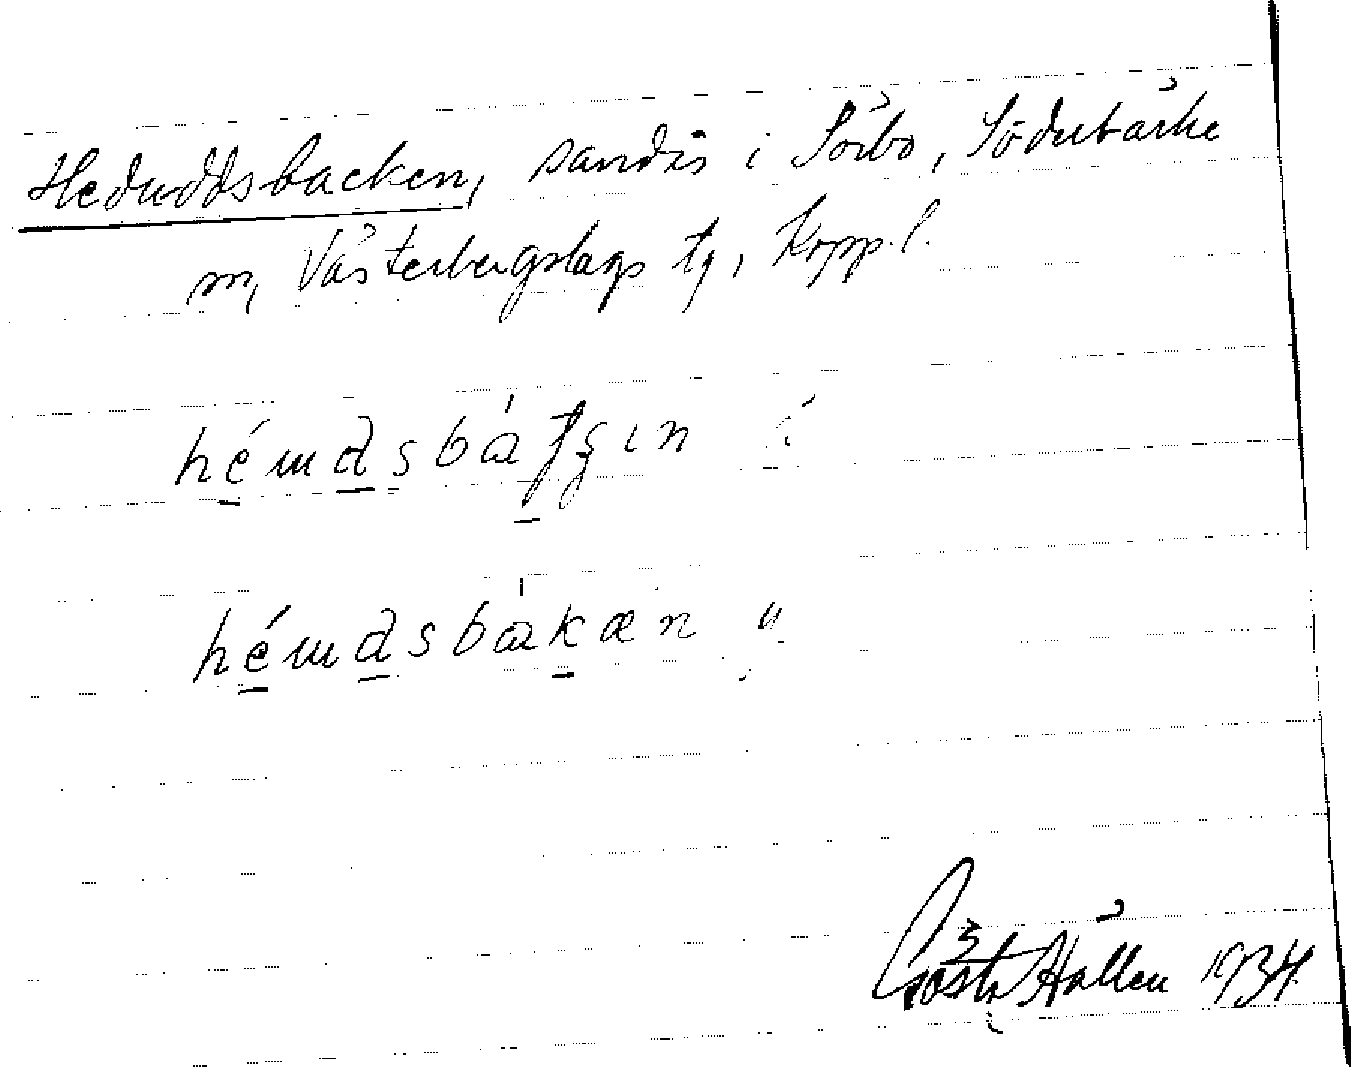 Heduddsbacken, sandås i Sörbo, Söderbärke
sn, Västerbergslags tg, Kopp. l.
héɯdsbátʂın i
héɯdsbákæn "
Gösta Hållen 1934.